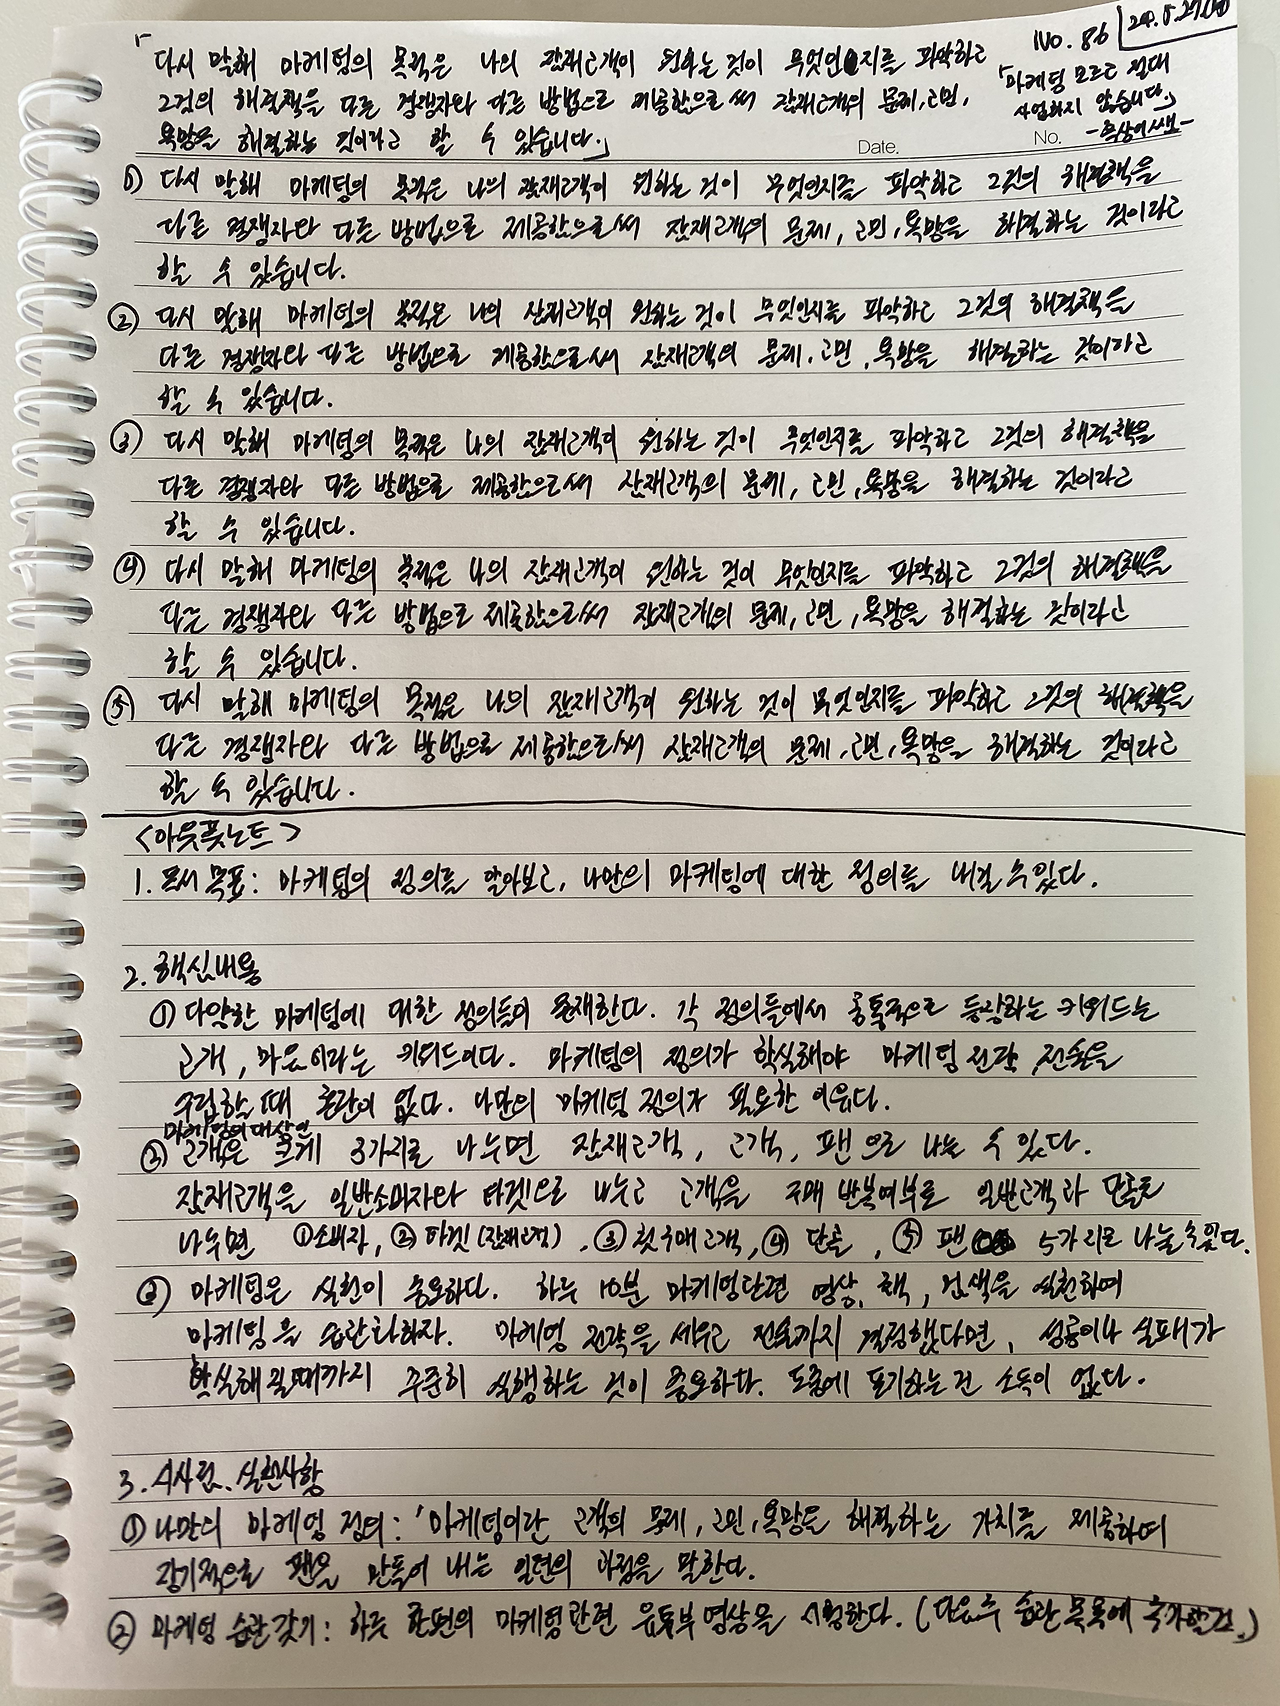 No. 86
「다시 말해 마케팅의 목적은 나의 잠재고객이 원하는 것이 무엇인지를 파악하고
그것의 해결책을 다른 경쟁자와 다른 방법으로 제공함으로써 잠재고객의 문제, 고민,
욕망을 해결하는 것이라고 할 수 있습니다.」
「마케팅 모르고 절대
사업하지 않습니다.」
Date.
No.
① 다시 말해 마케팅의 목적은 나의 잠재고객이 원하는 것이 무엇인지를 파악하고 그것의 해결책을
다른 경쟁자와 다른 방법으로 제공함으로써 잠재고객의 문제, 고민, 욕망을 해결하는 것이라고
할 수 있습니다.
② 다시 말해 마케팅의 목적은 나의 잠재고객이 원하는 것이 무엇인지를 파악하고 그것의 해결책을
다른 경쟁자와 다른 방법으로 제공함으로써 잠재고객의 문제, 고민, 욕망을 해결하는 것이라고
할 수 있습니다.
③ 다시 말해 마케팅의 목적은 나의 잠재고객이 원하는 것이 무엇인지를 파악하고 그것의 해결책을
다른 경쟁자와 다른 방법으로 제공함으로써 잠재고객의 문제, 고민, 욕망을 해결하는 것이라고
할 수 있습니다.
④ 다시 말해 마케팅의 목적은 나의 잠재고객이 원하는 것이 무엇인지를 파악하고 그것의 해결책을
다른 경쟁자와 다른 방법으로 제공함으로써 잠재고객의 문제, 고민, 욕망을 해결하는 것이라고
할 수 있습니다.
⑤ 다시 말해 마케팅의 목적은 나의 잠재고객이 원하는 것이 무엇인지를 파악하고 그것의 해결책을
다른 경쟁자와 다른 방법으로 제공함으로써 잠재고객의 문제, 고민, 욕망을 해결하는 것이라고
할 수 있습니다.
<아웃풋노트>
1. 독서 목표: 마케팅의 정의를 알아보고, 나만의 마케팅에 대한 정의를 내릴 수 있다.
2. 핵심내용
① 다양한 마케팅에 대한 정의들이 존재한다. 각 정의들에서 공통적으로 등장하는 키워드는
고객, 마음이라는 키워드이다. 마케팅의 정의가 확실해야 마케팅 전략, 전술을
수립할 때 혼란이 없다. 나만의 마케팅 정의가 필요한 이유다.
마케팅의 대상인
② 고객은 크게 3가지로 나누면 잠재고객, 고객, 팬으로 나눌 수 있다.
잠재고객을 일반소비자와 타겟으로 나누고 고객을 구매 반복여부로 일반고객과 단골로
나누면 ①소비자, ②타겟(잠재고객), ③첫구매고객, ④단골, ⑤팬 5가지로 나눌 수 있다.
③ 마케팅은 실천이 중요하다. 하루 10분 마케팅관련 영상, 책, 검색을 실천하여
마케팅을 습관화하자. 마케팅 전략을 세우고 전술까지 결정했다면, 성공이나 실패가
확실해질때까지 꾸준히 실행하는 것이 중요하다. 도중에 포기하는건 소득이 없다.
3. 시사점, 실천사항
① 나만의 마케팅 정의: '마케팅이란 고객의 문제, 고민, 욕망을 해결하는 가치를 제공하며
장기적으로 팬을 만들어 내는 일련의 과정을 말한다.
② 마케팅 습관갖기: 하루 한편의 마케팅관련 유튜브 영상을 시청한다. (다음주 습관 목록에 추가할것.)